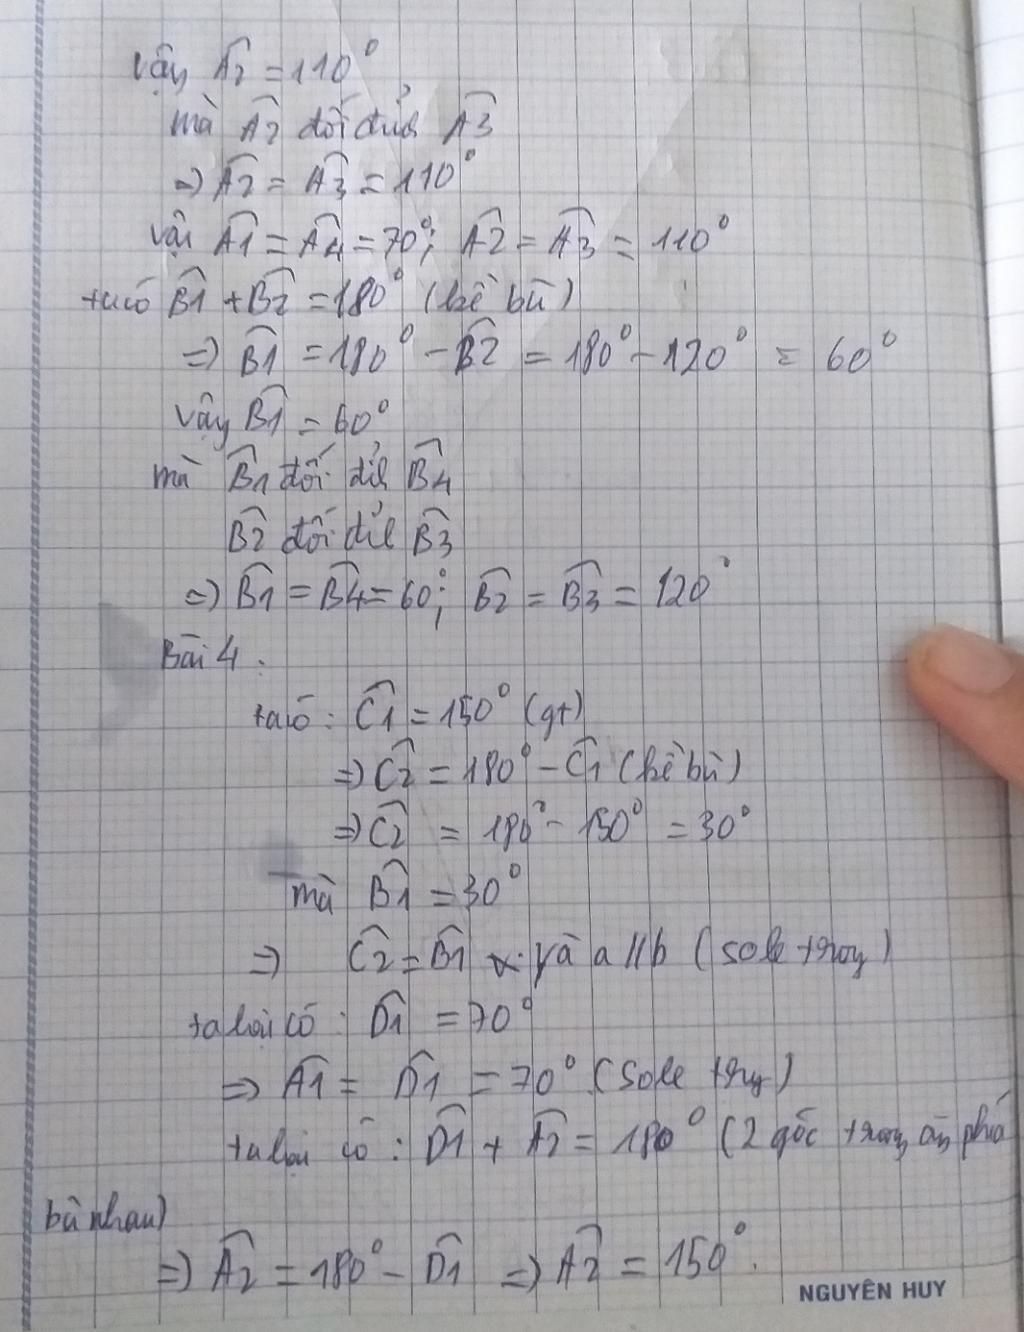 vậy Â2 = 110°
mà Â2 đối đỉnh Â3
=> Â2 = Â3 = 110°
vậy Â1 = Â4 = 70°; Â2 = Â3 = 110°
ta có B̂1 + B̂2 = 180° (kề bù)
=> B̂1 = 180° - B̂2 = 180° - 120° = 60°
vậy B̂1 = 60°
mà B̂1 đối đỉnh B̂4
B̂2 đối đỉnh B̂3
=> B̂1 = B̂4 = 60°; B̂2 = B̂3 = 120°
Bài 4.
ta có: Ĉ1 = 150° (gt)
=> Ĉ2 = 180° - Ĉ1 (kề bù)
=> Ĉ2 = 180° - 150° = 30°
mà B̂1 = 30°
=> Ĉ2 = B̂1 và a // b (sole trong)
ta lại có: D̂1 = 70°
=> Â1 = D̂1 = 70° (sole trong)
ta lại có: D̂1 + Â2 = 180° (2 góc trong cùng phía
bù nhau)
=> Â2 = 180° - D̂1 => Â2 = 150°.
NGUYÊN HUY